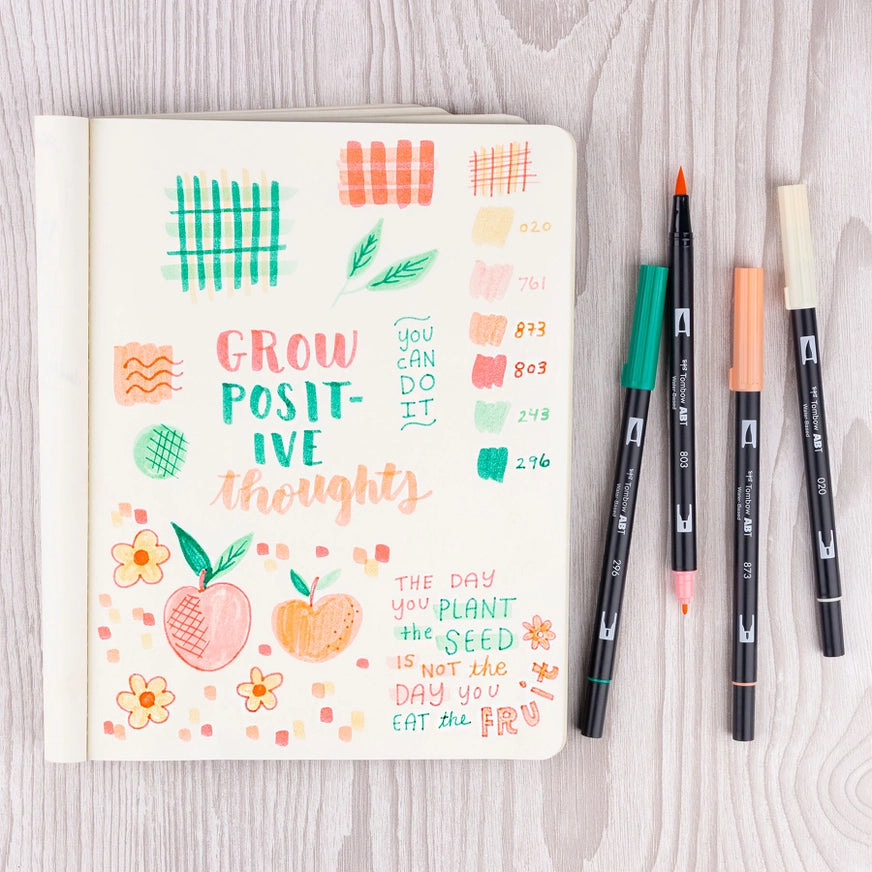 GROW
POSIT-
IVE
thoughts
YOU
CAN
DO
IT
020
761
873
803
243
296
THE DAY
YOU PLANT
the SEED
IS NOT the
DAY YOU
EAT the FRUIT
Tombow ABT
Water-Based
296
Tombow ABT
Water-Based
803
Tombow ABT
Water-Based
873
Tombow ABT
Water-Based
020